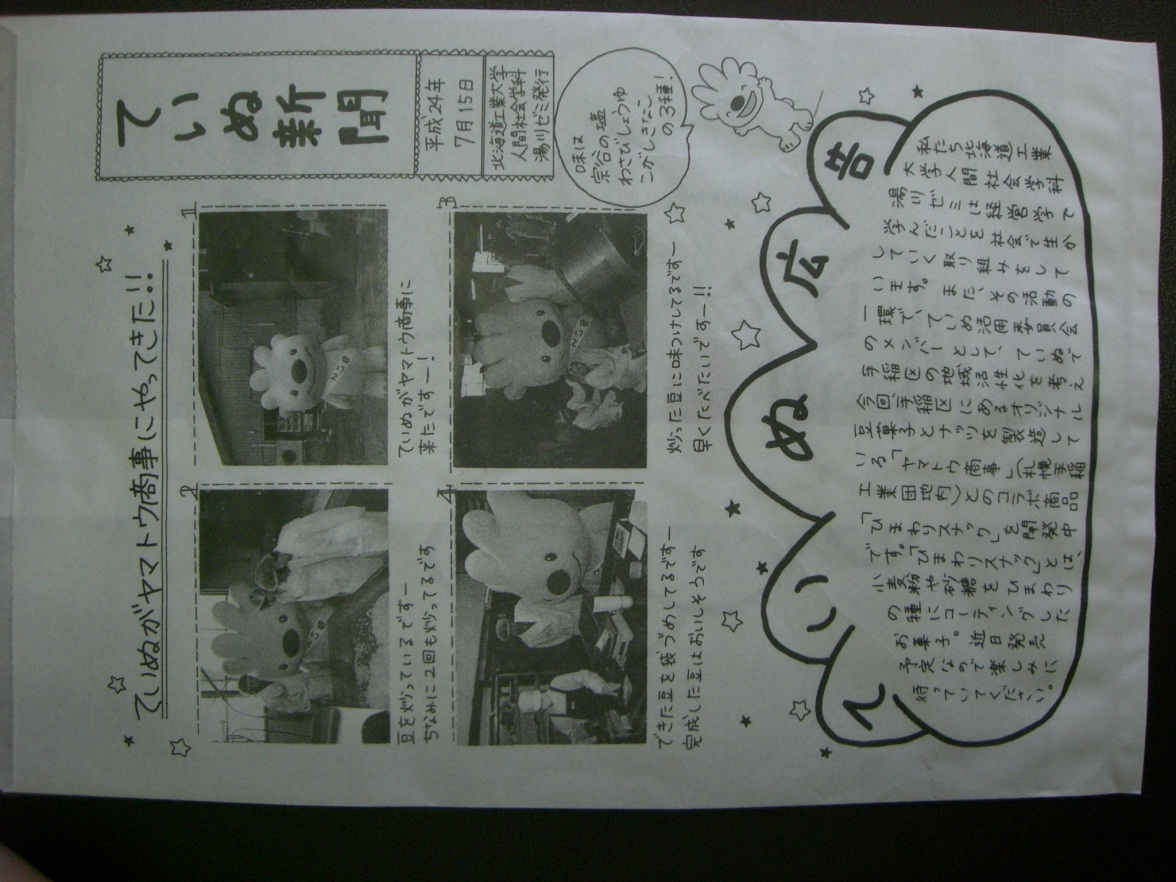 ていぬ新聞
平成24年
7月15日
北海道工業大学
人間社会学科
湯川ゼミ発行
ていぬがヤマトウ商事にやってきた!!
1
ていぬがヤマトウ商事に
来たですー!
2
豆を炒っているですー
ちなみに2回も炒ってるです
3
炒った豆に味つけしてるですー
早くたべたいですー!!
4
できた豆を袋づめしてるですー
完成した豆はおいしそうです
味は
宗谷の塩
わさびしょうゆ
こがしきなこ
の3種!
ていぬ広告
私たち北海道工業
大学人間社会学科
湯川ゼミは経営学で
学んだことを社会で生か
していく取り組みをして
います。また、その活動の
一環で、ていぬ活用委員会
のメンバーとして、ていぬで
手稲区の地域活性化を考え
今回、手稲区にあるオリジナル
豆菓子とナッツを製造して
いる「ヤマトウ商事」(札幌手稲
工業団地内)とのコラボ商品
「ひまわりスナック」を開発中
です。「ひまわりスナック」とは、
小麦粉や砂糖をひまわり
の種にコーティングした
お菓子。近日発売
予定なので楽しみに
待っていてください。